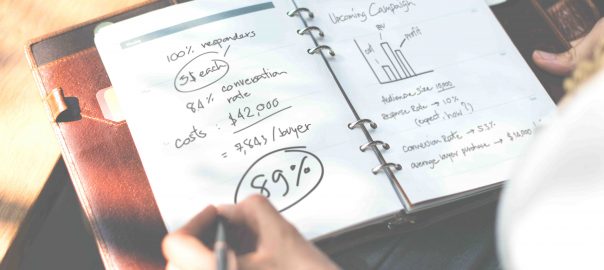 100% responders
5$ each
84% conversation
rate
costs : $42,000
= 7,845/buyer
89%
Upcoming Campaign
call
profit
Audience Size 10,000
Response Rate → 10%
(expect. how?)
conversion Rate → 5.3%
average buyer purchase →